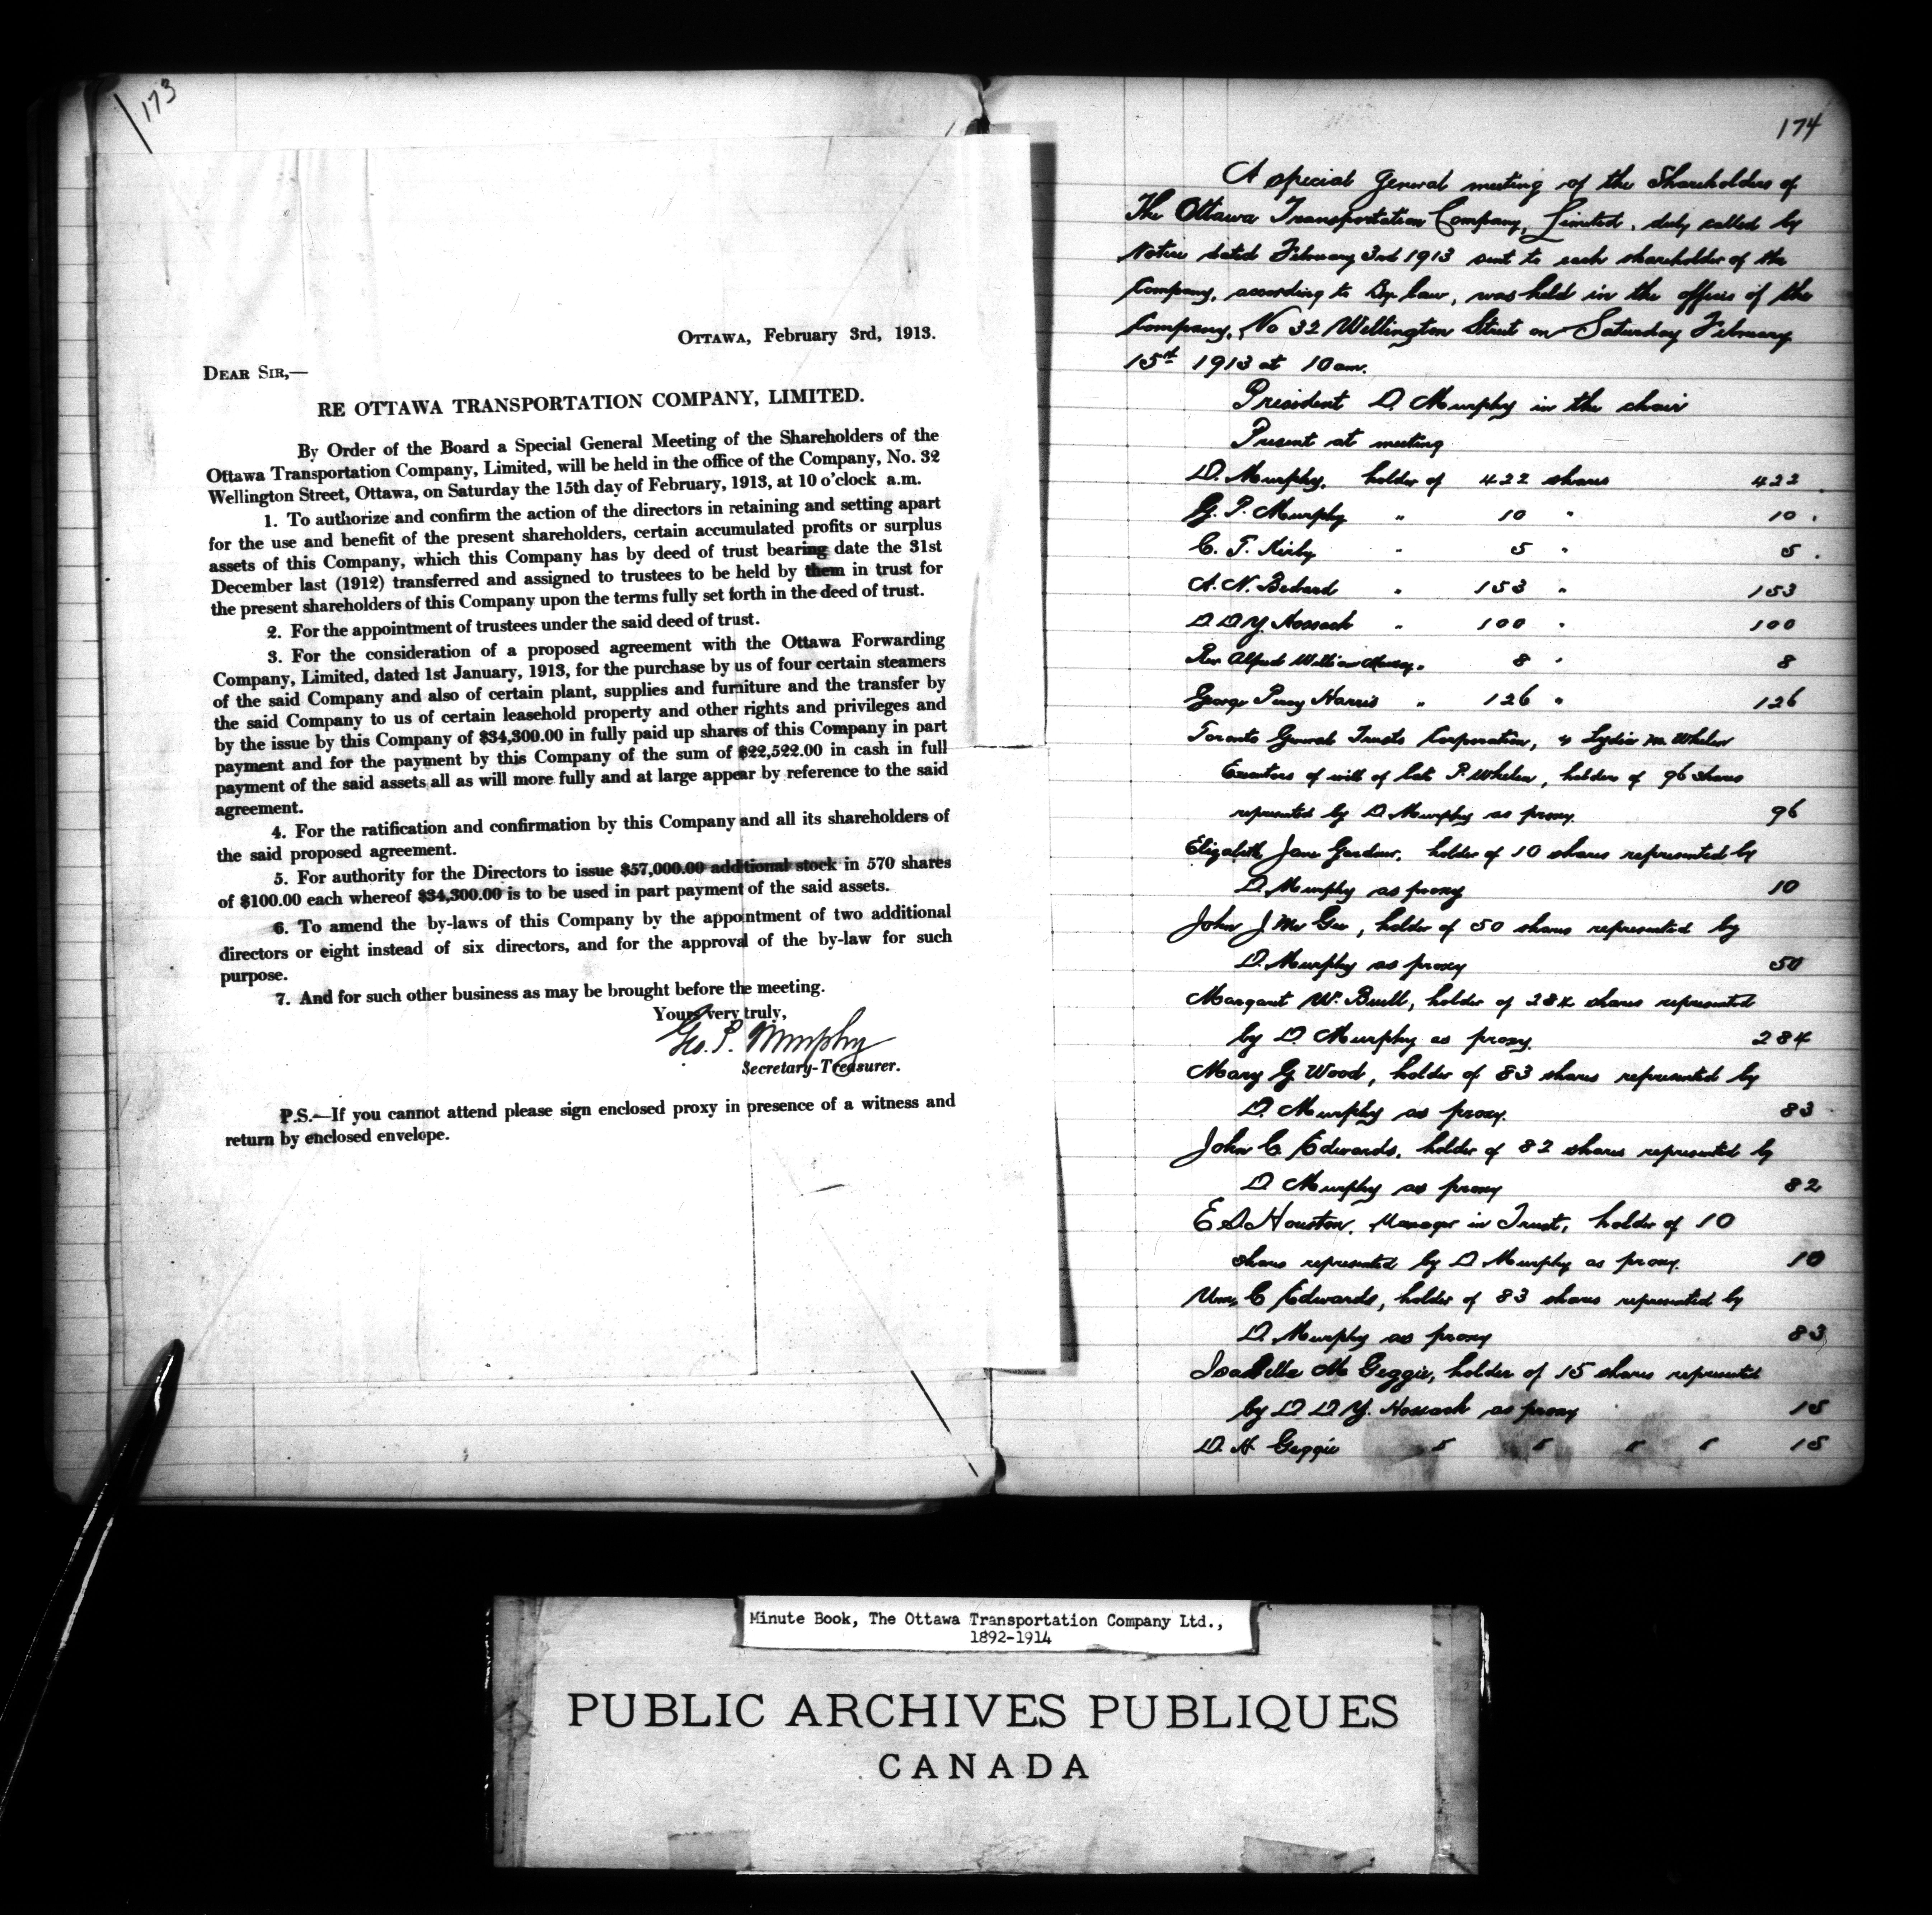 173
OTTAWA, February 3rd, 1913.
DEAR SIR,—
RE OTTAWA TRANSPORTATION COMPANY, LIMITED.
By Order of the Board a Special General Meeting of the Shareholders of the
Ottawa Transportation Company, Limited, will be held in the office of the Company, No. 32
Wellington Street, Ottawa, on Saturday the 15th day of February, 1913, at 10 o'clock a.m.
1. To authorize and confirm the action of the directors in retaining and setting apart
for the use and benefit of the present shareholders, certain accumulated profits or surplus
assets of this Company, which this Company has by deed of trust bearing date the 31st
December last (1912) transferred and assigned to trustees to be held by them in trust for
the present shareholders of this Company upon the terms fully set forth in the deed of trust.
2. For the appointment of trustees under the said deed of trust.
3. For the consideration of a proposed agreement with the Ottawa Forwarding
Company, Limited, dated 1st January, 1913, for the purchase by us of four certain steamers
of the said Company and also of certain plant, supplies and furniture and the transfer by
the said Company to us of certain leasehold property and other rights and privileges and
by the issue by this Company of $34,300.00 in fully paid up shares of this Company in part
payment and for the payment by this Company of the sum of $22,522.00 in cash in full
payment of the said assets all as will more fully and at large appear by reference to the said
agreement.
4. For the ratification and confirmation by this Company and all its shareholders of
the said proposed agreement.
5. For authority for the Directors to issue $57,000.00 additional stock in 570 shares
of $100.00 each whereof $34,300.00 is to be used in part payment of the said assets.
6. To amend the by-laws of this Company by the appointment of two additional
directors or eight instead of six directors, and for the approval of the by-law for such
purpose.
7. And for such other business as may be brought before the meeting.
Yours very truly,
Geo. P. Murphy
Secretary-Treasurer.
P.S.—If you cannot attend please sign enclosed proxy in presence of a witness and
return by enclosed envelope.
174
A special general meeting of the Shareholders of
The Ottawa Transportation Company, Limited, duly called by
Notice dated February 3rd 1913 sent to each shareholder of the
Company, according to By-law, was held in the offices of the
Company, No 32 Wellington Street on Saturday February
15th 1913 at 10 am.
President D. Murphy in the chair
Present at meeting
D. Murphy, holder of 422 shares 422
G. P. Murphy " 10 " 10
C. T. Kirby " 5 " 5
A. N. Bedard " 153 " 153
D D Y. Hossack " 100 " 100
Rev Alfred William 8 " 8
George Percy Harris " 126 " 126
Toronto General Trusts Corporation, & Lydia M. Whelen
Executors of will of late P. Whelen, holders of 96 shares
represented by D. Murphy as proxy. 96
Elizabeth Jane Gardner, holder of 10 shares represented by
D. Murphy as proxy 10
John J McGee, holder of 50 shares represented by
D. Murphy as proxy 50
Margaret W. Buell, holder of 284 shares represented
by D. Murphy as proxy. 284
Mary G Wood, holder of 83 shares represented by
D. Murphy as proxy. 83
John C. Edwards, holder of 82 shares represented by
D Murphy as proxy 82
E S Houston, Manager in Trust, holder of 10
shares represented by D Murphy as proxy. 10
Wm. C Edwards, holder of 83 shares represented by
D. Murphy as proxy 83
Isabella M Geggie, holder of 15 shares represented
by D D Y. Hossack as proxy 15
D. H Geggie " " " " 15
Minute Book, The Ottawa Transportation Company Ltd.,
1892-1914
PUBLIC ARCHIVES PUBLIQUES
CANADA